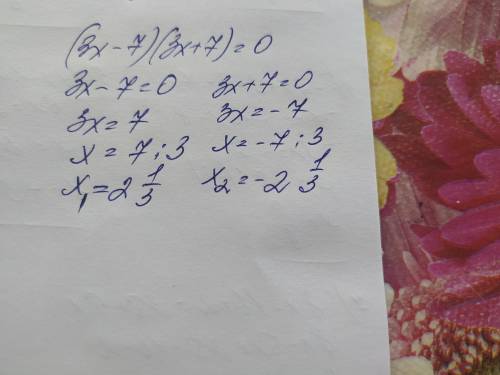 (3x-7)(3x+7)=0
3x-7=0 3x+7=0
3x=7 3x=-7
x=7:3 x=-7:3
x₁=2 1/3 x₂=-2 1/3